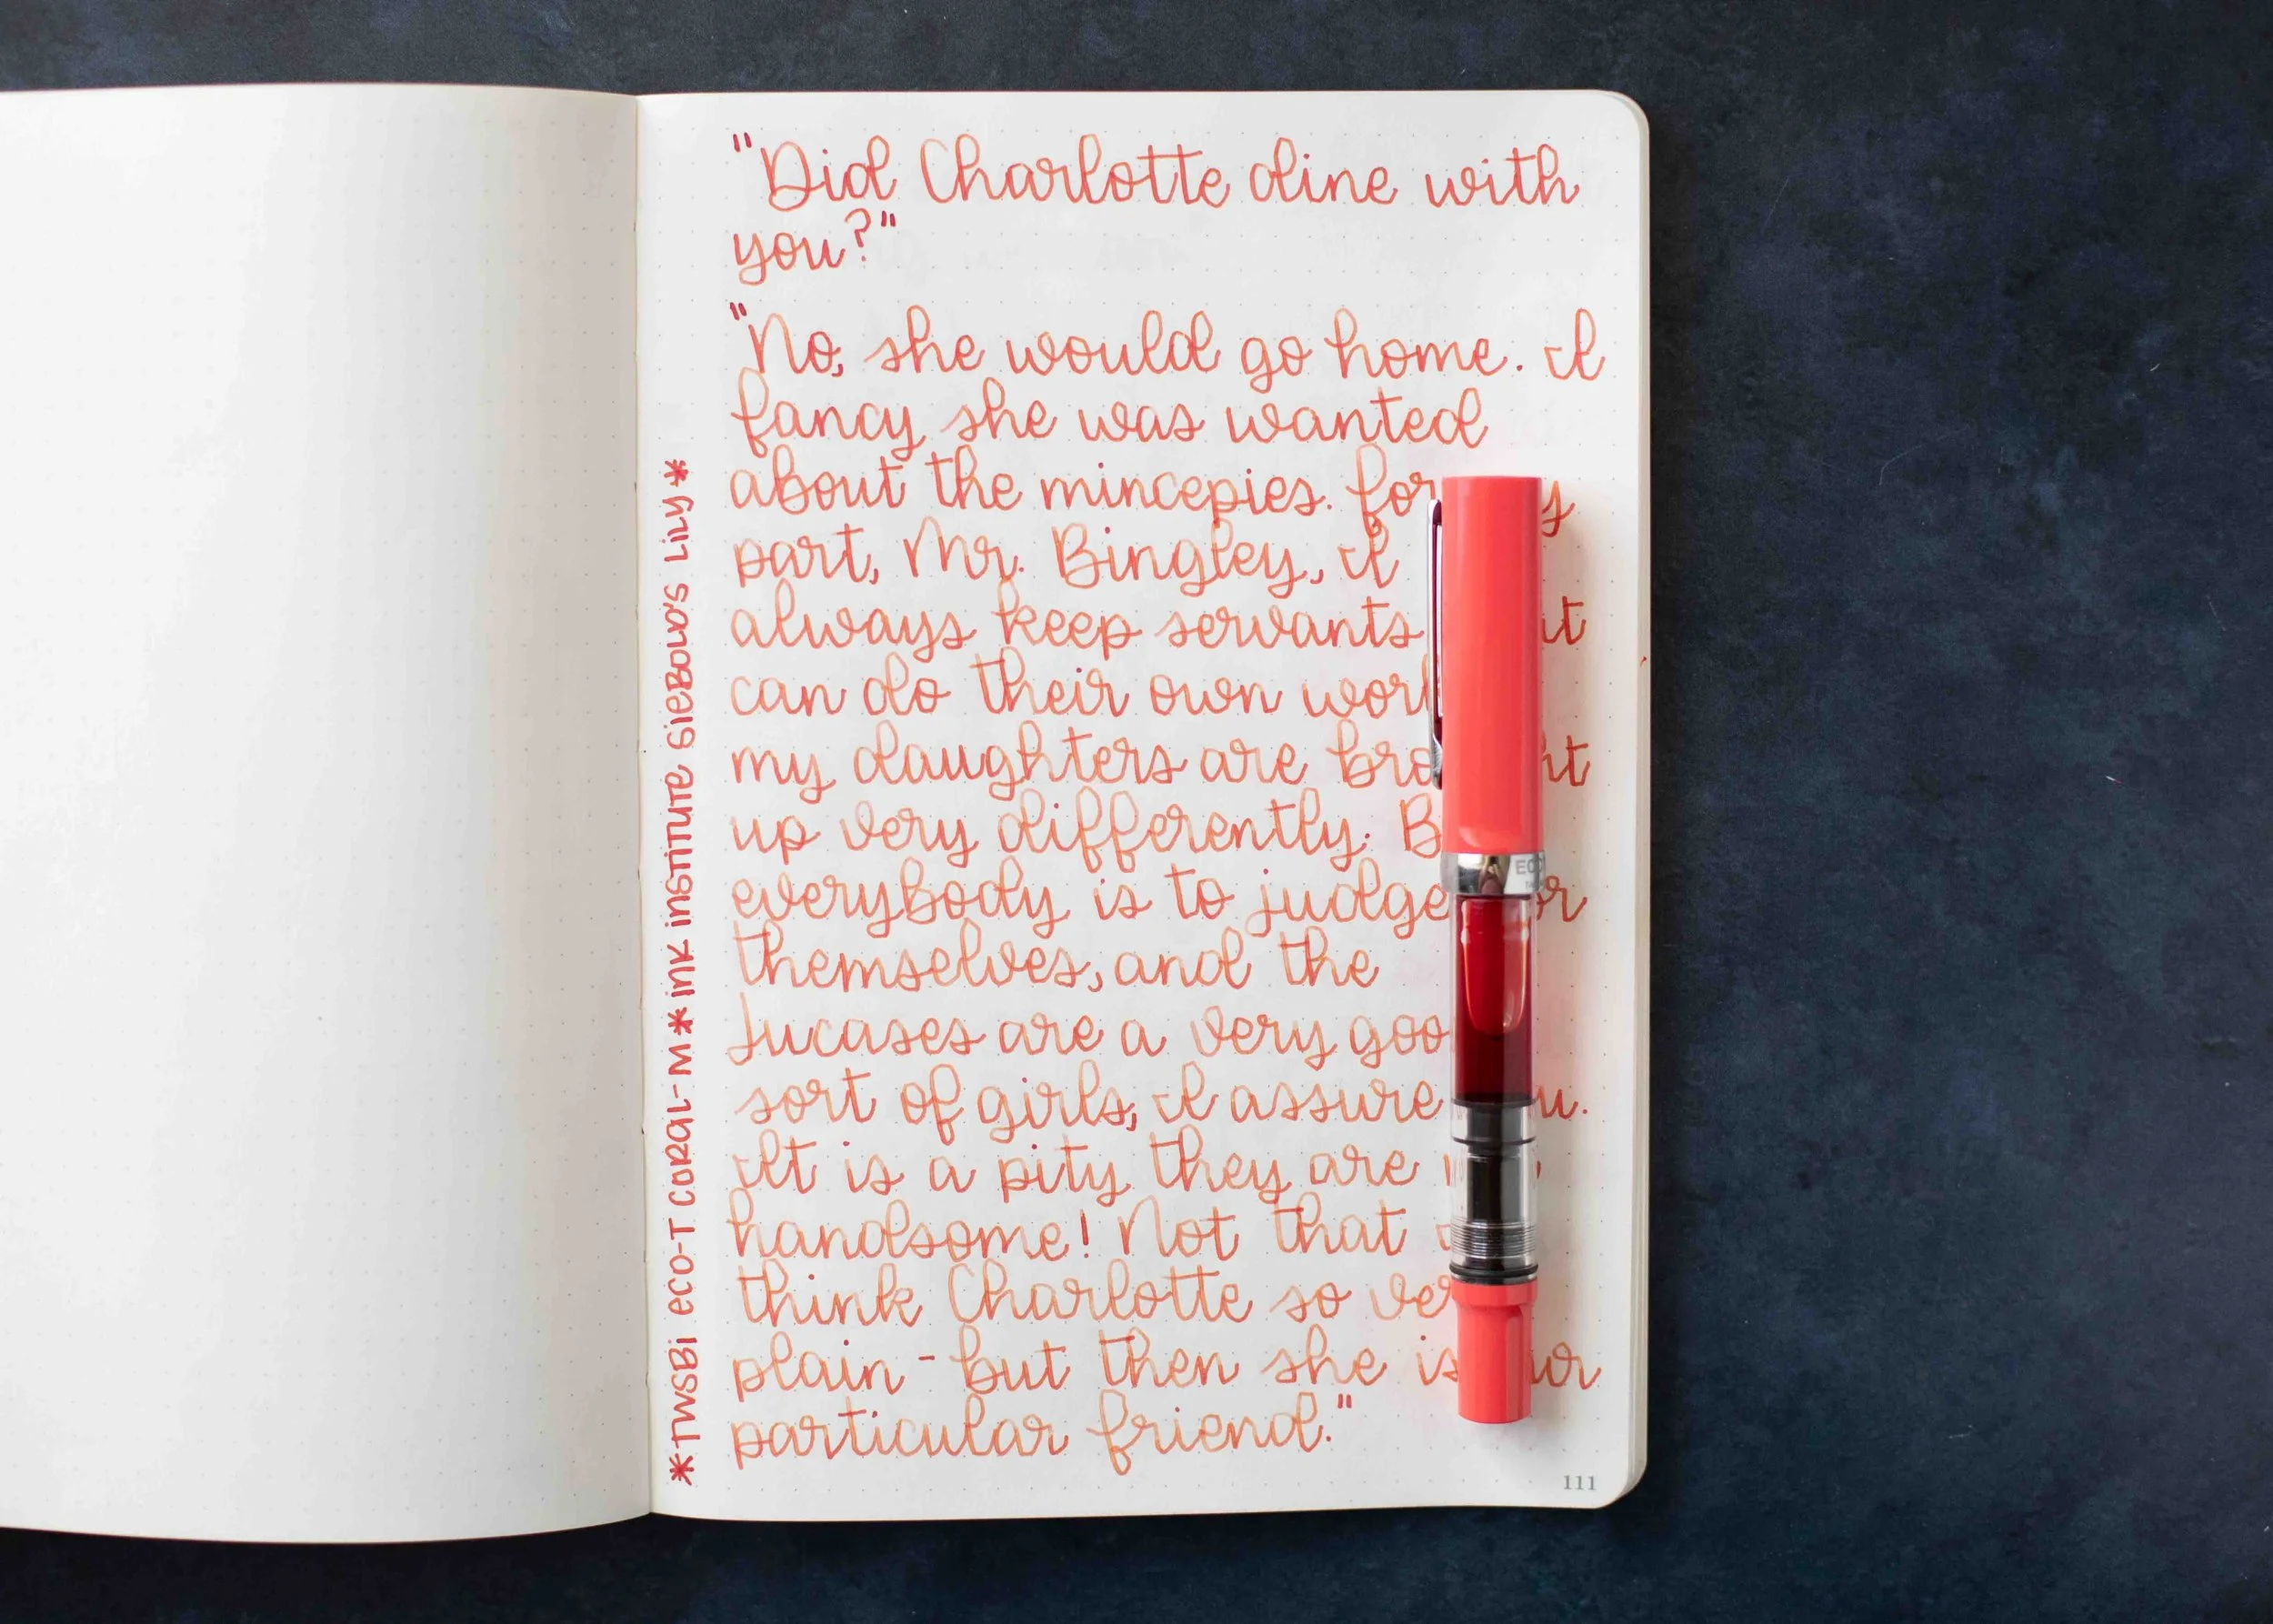 "Did Charlotte dine with
you?"
"No, she would go home. I
fancy she was wanted
about the mincepies. For
part, Mr. Bingley, I
always keep servants
can do their own
my daughters are
up very differently. 
everybody is to judge
themselves, and the
Lucases are a very
sort of girls, I assure
It is a pity they are
handsome! Not that
think Charlotte so
plain - but then she is
particular friend."
111
*TWSBI ECO-T CORAL-M*INK INSTITUTE SIEBOLD'S LILY*
ECO